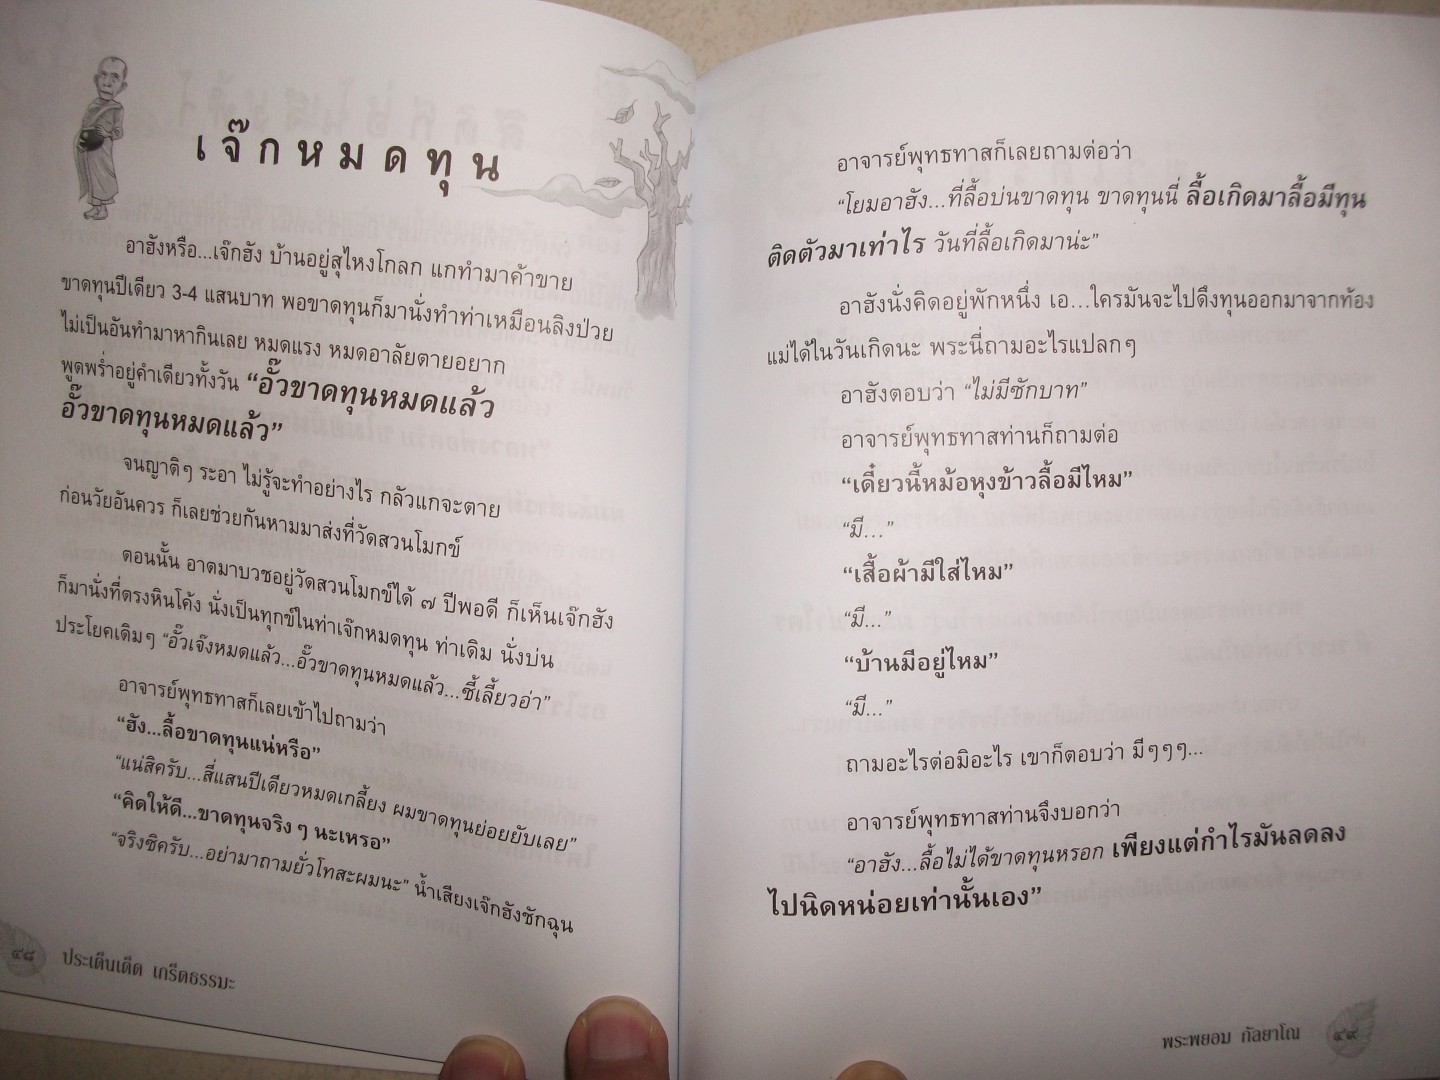 เจ๊กหมดทุน
อาฮังหรือ...เจ๊กฮัง บ้านอยู่สุไหงโกลก แกทำมาค้าขาย
ขาดทุนปีเดียว 3-4 แสนบาท พอขาดทุนก็มานั่งทำท่าเหมือนลิงป่วย
ไม่เป็นอันทำมาหากินเลย หมดแรง หมดอาลัยตายอยาก
พูดพร่ำอยู่คำเดียวทั้งวัน “อั๊วขาดทุนหมดแล้ว
อั๊วขาดทุนหมดแล้ว”
จนญาติๆ ระอา ไม่รู้จะทำอย่างไร กลัวแกจะตาย
ก่อนวัยอันควร ก็เลยช่วยกันหามมาส่งที่วัดสวนโมกข์
ตอนนั้น อาตมาบวชอยู่วัดสวนโมกข์ได้ ๗ ปีพอดี ก็เห็นเจ๊กฮัง
ก็มานั่งที่ตรงหินโค้ง นั่งเป็นทุกข์ในท่าเจ๊กหมดทุน ท่าเดิม นั่งบ่น
ประโยคเดิมๆ “อั๊วเจ๊งหมดแล้ว...อั๊วขาดทุนหมดแล้ว...ซี้เลี้ยวอ่า”
อาจารย์พุทธทาสก็เลยเข้าไปถามว่า
“ฮัง...ลื้อขาดทุนแน่หรือ”
“แน่สิครับ...สี่แสนปีเดียวหมดเกลี้ยง ผมขาดทุนย่อยยับเลย”
“คิดให้ดี...ขาดทุนจริง ๆ นะเหรอ”
“จริงซิครับ...อย่ามาถามยั่วโทสะผมนะ” น้ำเสียงเจ๊กฮังชักฉุน
๔๘ ประเด็นเด็ด เกร็ดธรรมะ
อาจารย์พุทธทาสก็เลยถามต่อว่า
“โยมอาฮัง...ที่ลื้อบ่นขาดทุน ขาดทุนนี่ ลื้อเกิดมาลื้อมีทุน
ติดตัวมาเท่าไร วันที่ลื้อเกิดมาน่ะ”
อาฮังนั่งคิดอยู่พักหนึ่ง เอ...ใครมันจะไปดึงทุนออกมาจากท้อง
แม่ได้ในวันเกิดนะ พระนี่ถามอะไรแปลกๆ
อาฮังตอบว่า “ไม่มีซักบาท”
อาจารย์พุทธทาสท่านก็ถามต่อ
“เดี๋ยวนี้หม้อหุงข้าวลื้อมีไหม”
“มี...”
“เสื้อผ้ามีใส่ไหม”
“มี...”
“บ้านมีอยู่ไหม”
“มี...”
ถามอะไรต่อมิอะไร เขาก็ตอบว่า มีๆๆๆ...
อาจารย์พุทธทาสท่านจึงบอกว่า
“อาฮัง...ลื้อไม่ได้ขาดทุนหรอก เพียงแต่กำไรมันลดลง
ไปนิดหน่อยเท่านั้นเอง”
พระพยอม กัลยาโณ ๔๙